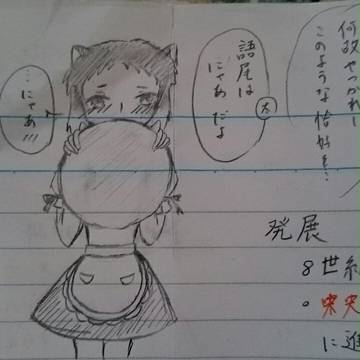 何故やつがれが
このような恰好を…
語尾は
にゃあだよ
太
…にゃあ///
発展
8世紀
に進